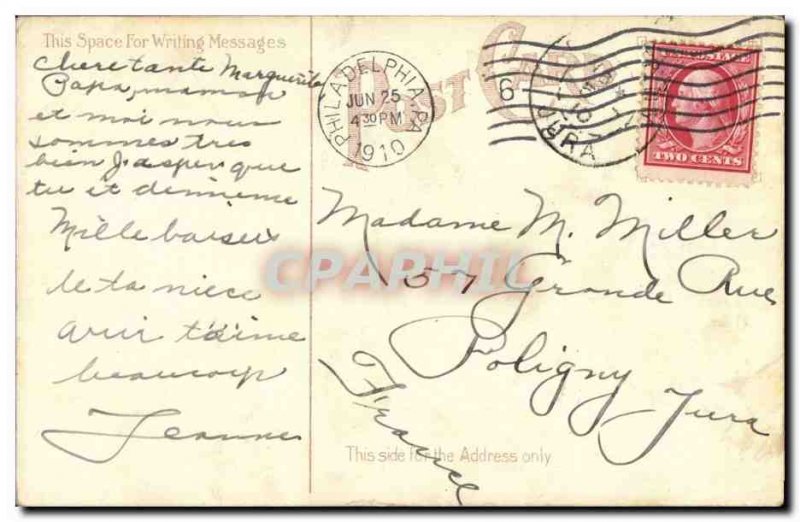 This Space For Writing Messages
POST CARD
PHILADELPHIA, PA.
JUN 25
4 30 PM
1910
6
JURA
U.S. POSTAGE
TWO CENTS
Chere tante Marguerite
Papa, maman
et moi nous
sommes tres
bien J'asper que
tu et demieme
Mille baiseus
de ta niece
t'aime
beaucoup
Jeanne
Madame M. Miller
57 Grande Rue
Poligny Jura
France
This side for the Address only
CPAPHIL